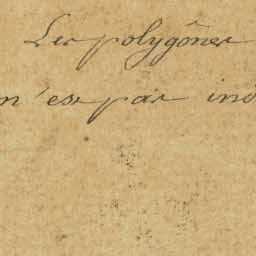 Les polygônes
n'est pas ind